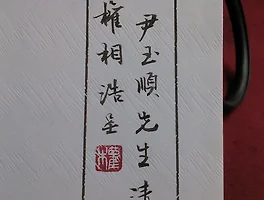 尹玉順先生清
權相浩呈